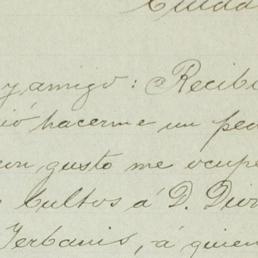 Ciuda
y amigo: Recib
ió hacerme un pe
con gusto me ocupé
bultos á D. Div
Yerbanis, á quien